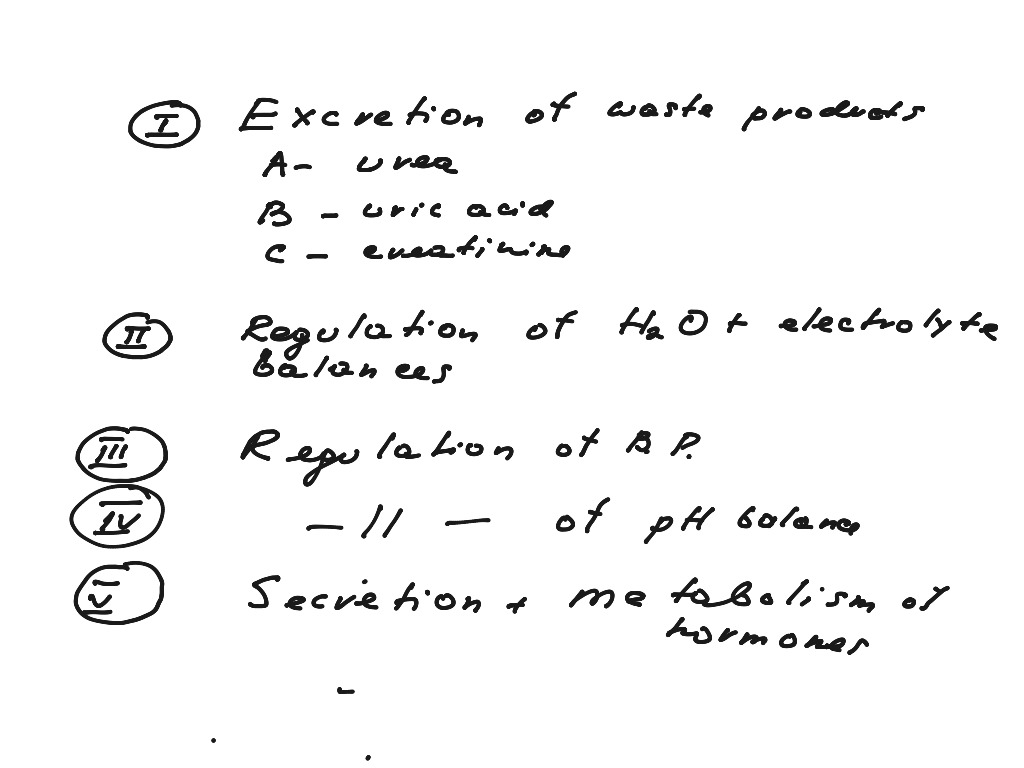 I Excretion of waste products
A- urea
B - uric acid
C - creatinine
II Regulation of H2O + electrolyte
balances
III Regulation of B.P.
IV — // — of pH balance
V Secretion + metabolism of
hormones